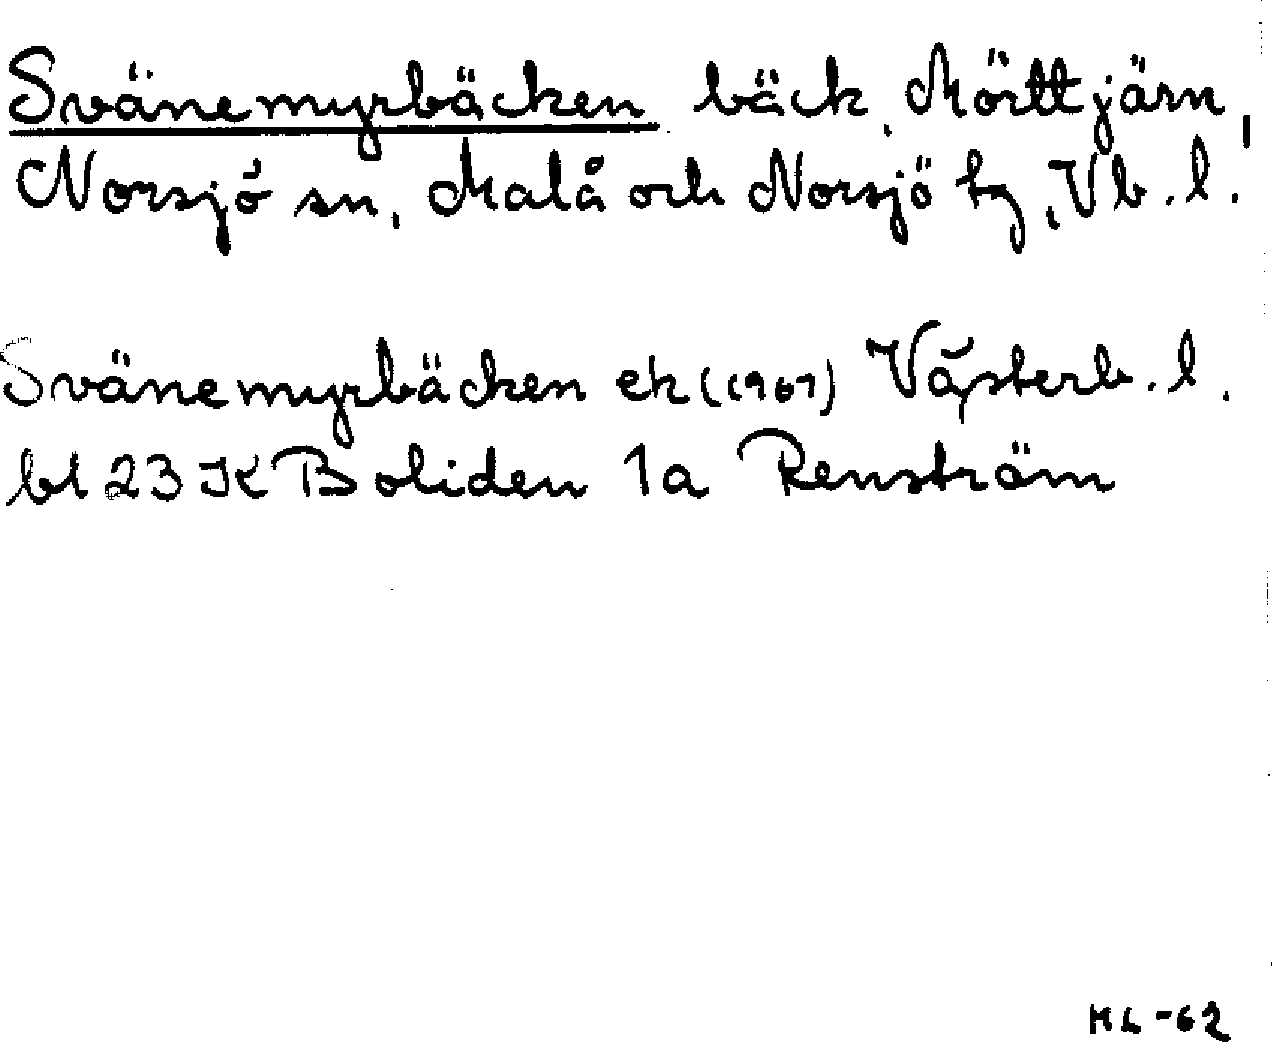 Svänemyrbäcken bäck, Mörttjärn,
Norsjö sn, Malå och Norsjö tg, Vb. l.
Svänemyrbäcken ek (1961) Västerb. l.
bl 23 K Boliden 1a Renström
ML -62